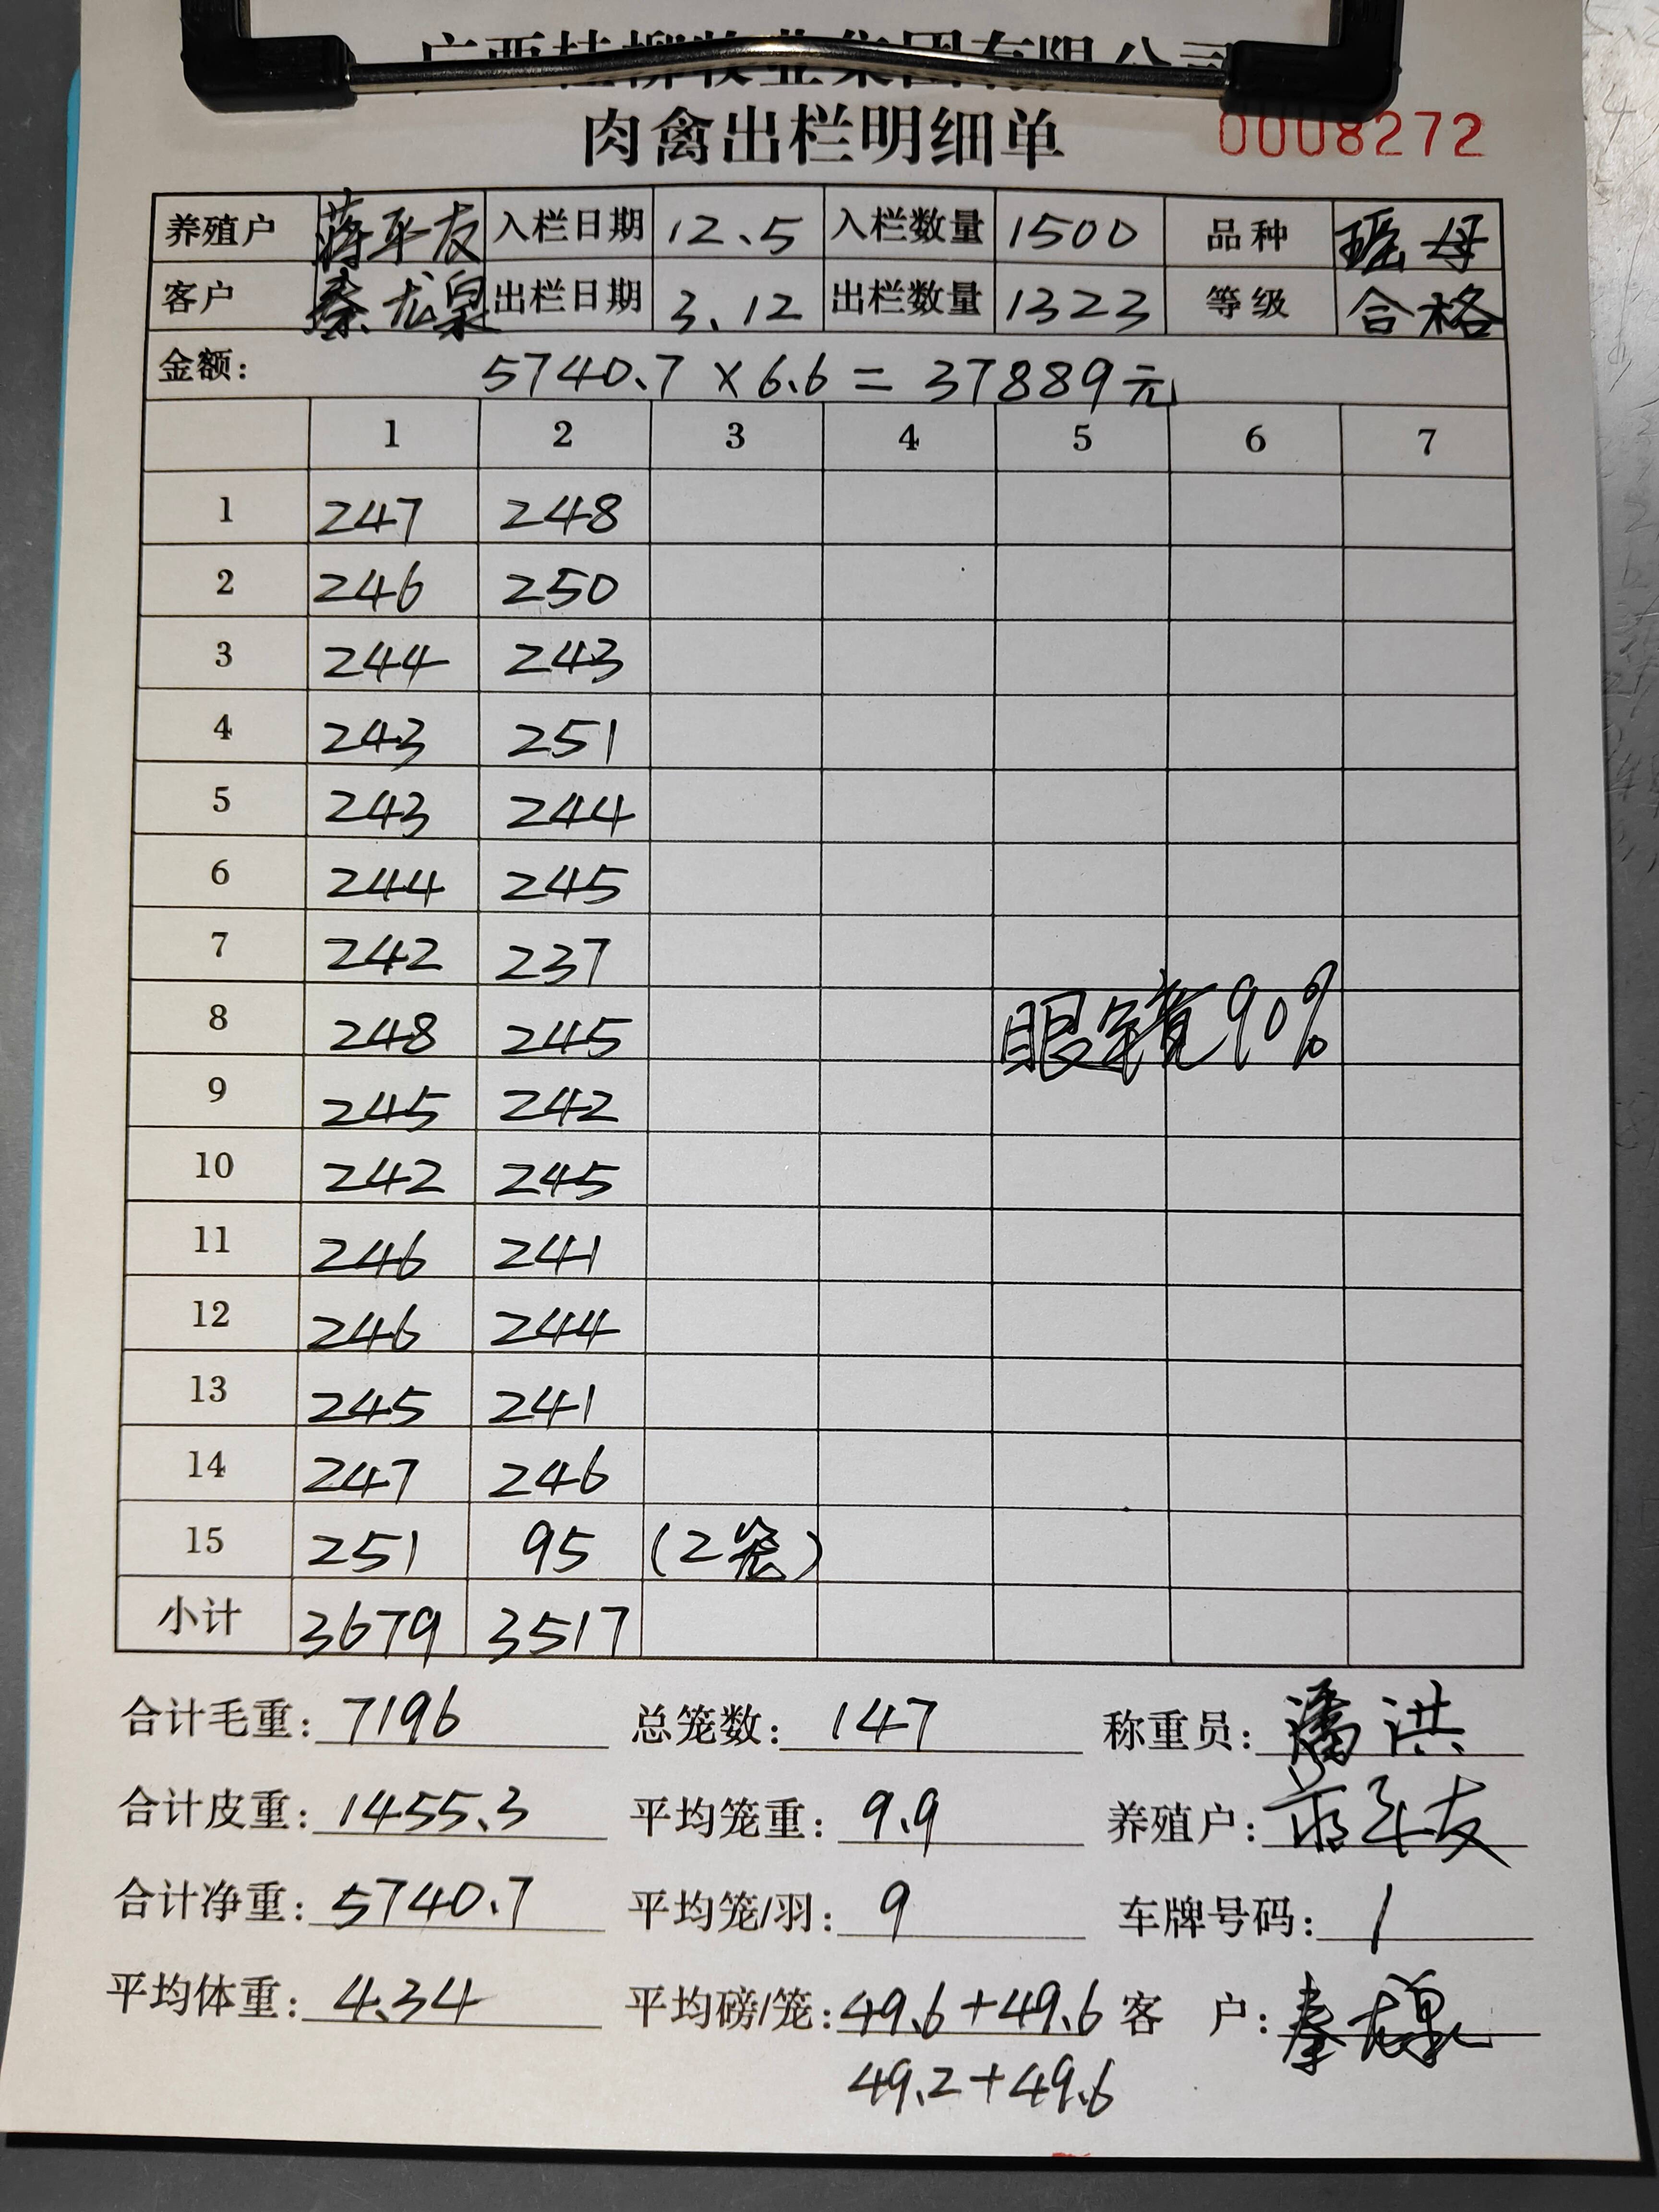 广西桂柳牧业集团有限公司
肉禽出栏明细单 0008272
养殖户 蒋年友 入栏日期 12.5 入栏数量 1500 品种 瑶母
客户 秦龙泉 出栏日期 3.12 出栏数量 1323 等级 合格
金额: 5740.7×6.6=37889元
1 2 3 4 5 6 7
1 247 248
2 246 250
3 244 243
4 243 251
5 243 244
6 244 245
7 242 237
8 248 245 眼镜90%
9 245 242
10 242 245
11 246 241
12 246 244
13 245 241
14 247 246
15 251 95 (2笼)
小计 3679 3517
合计毛重: 7196 总笼数: 147 称重员: 潘洪
合计皮重: 1455.3 平均笼重: 9.9 养殖户: 蒋年友
合计净重: 5740.7 平均笼/羽: 9 车牌号码: 1
平均体重: 4.34 平均磅/笼: 49.6+49.6 客 户: 秦龙泉
49.2+49.6